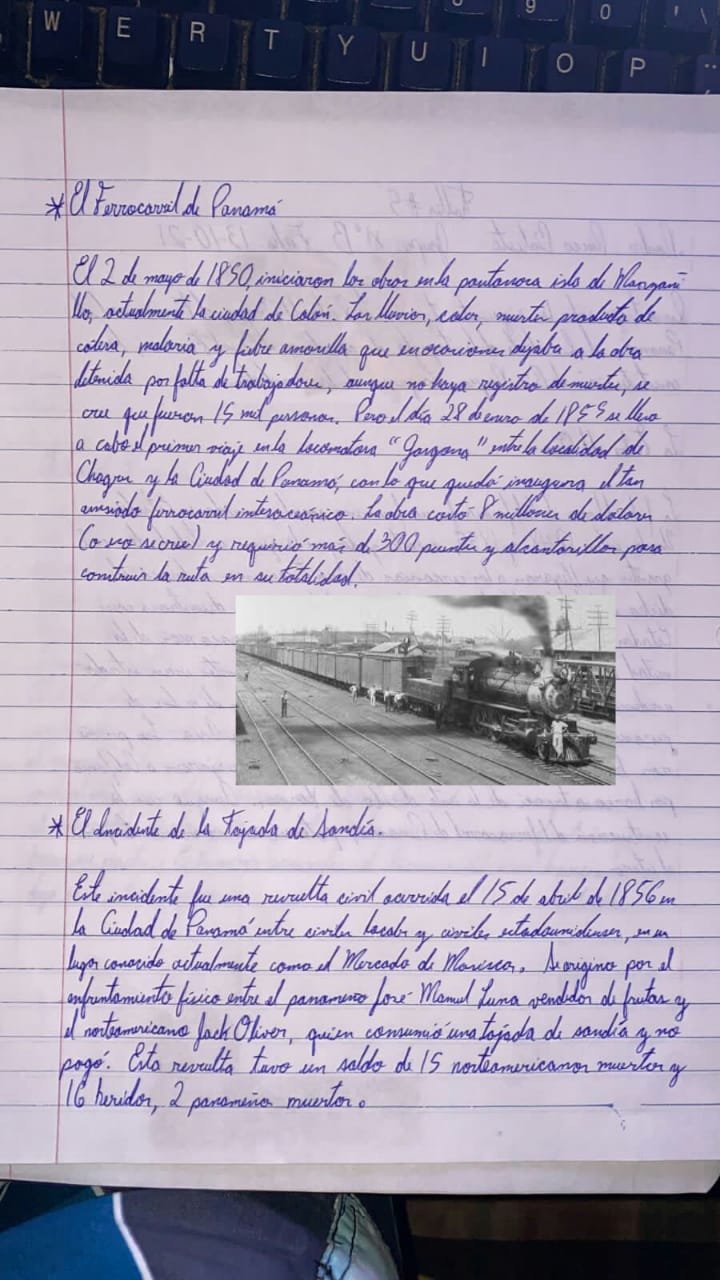 W E R T Y U I O P
9 0
* El Ferrocarril de Panamá
El 2 de mayo de 1850, iniciaron las obras en la pantanosa isla de Manzani-
llo, actualmente la ciudad de Colón. Las lluvias, calor, muerte producto de
cólera, malaria y fiebre amarilla que en ocasiones dejaba a la obra
detenida por falta de trabajadores, aunque no haya registro de muertes, se
cree que fueron 15 mil personas. Pero el día 28 de enero de 1855 se llevo
a cabo el primer viaje en la locomotora "Gorgona" entre la localidad de
Chagres y la Ciudad de Panamá, con lo que quedó inaugura el tan
ansiado ferrocarril interoceánico. La obra costó 8 millones de dólares
(o eso se cree) y requirió más de 300 puentes y alcantarillas para
construir la ruta en su totalidad.
* El Incidente de la Tajada de Sandía.
Este incidente fue una revuelta civil ocurrida el 15 de abril de 1856 en
la Ciudad de Panamá entre civiles locales y civiles estadounidenses, en un
lugar conocido actualmente como el Mercado de Marisco. Se origino por el
enfrentamiento físico entre el panameño José Manuel Luna vendedor de frutas y
el norteamericano Jack Oliver, quien consumió una tajada de sandía y no
pagó. Esta revuelta tuvo un saldo de 15 norteamericanos muertos y
16 heridos, 2 panameños muertos.